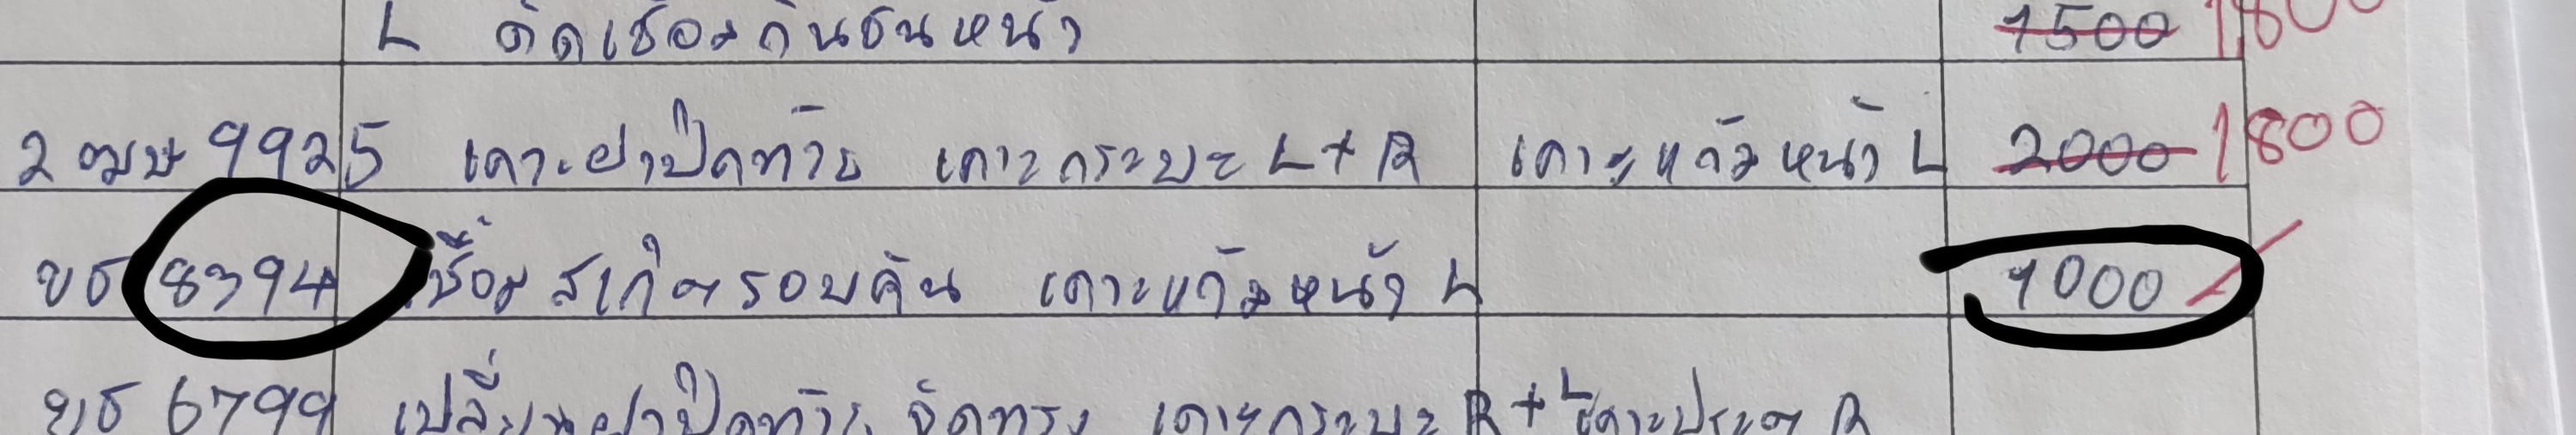 L ดัดเชื่อมกันชนหน้า 1500 1,800
2 ฒษ 9925 เคาะฝาปิดท้าย เคาะกระบะ L+R เคาะแก้มหน้า L 2000 1800
ยธ 8394 เชื่อมสเก๋ตรอบคัน เคาะแก้มหน้า L 1000
ยธ 6799 เปลี่ยนฝาปิดท้าย จัดทรง เคาะกระบะ R+L เคาะประตู R